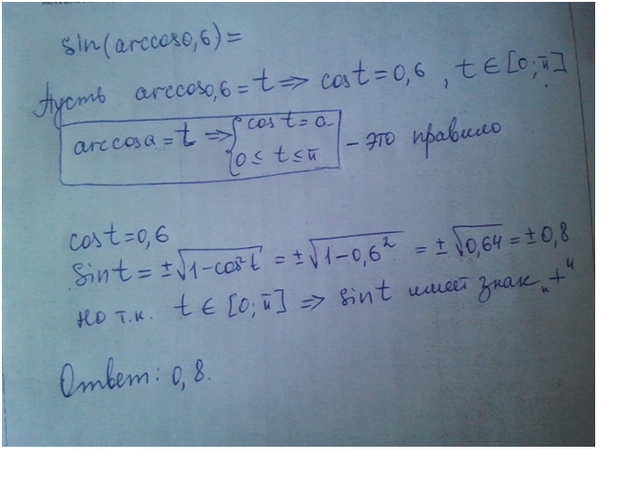 sin(arccos0,6)=
Пусть arccos0,6=t ⇒ cost=0,6, t∈[0;π]
arccosa=t ⇒ {cost=a
0≤t≤π – это правило
cost=0,6
Sint=±√1-cos²t = ±√1-0,6² = ±√0,64 = ±0,8
но т.к. t∈[0;π] ⇒ sint имеет знак „+“
Ответ: 0,8.